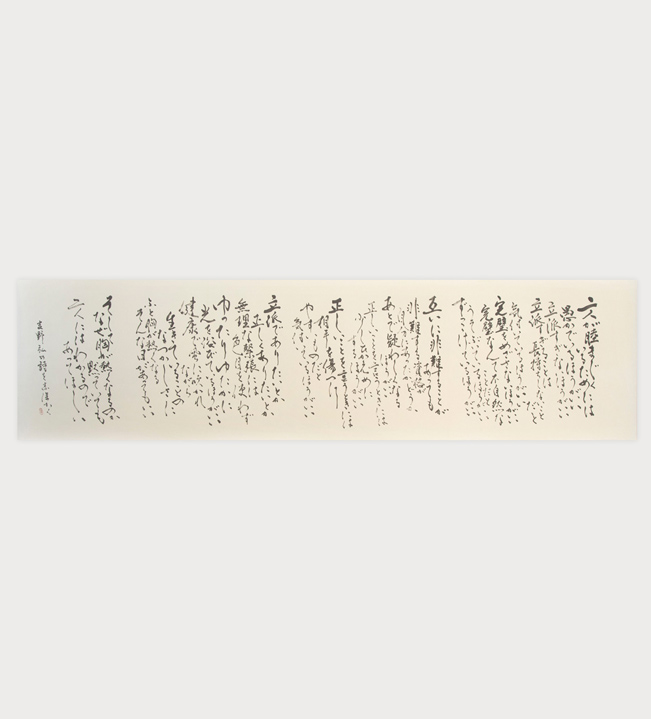 二人が睦まじくいるためには
愚かでいるほうがいい
立派すぎないほうがいい
立派すぎることは
長持ちしないことだと
気付いているほうがいい
完璧をめざさないほうがいい
完璧なんて不自然な
うそぶいているほうがいい
ずっこけているほうがいい
互いに非難することが
あっても
非難できる資格が
自分にあったかどうか
あとで疑わしくなる
ほうがいい
正しいことを言うときは
少しひかえめに
するほうがいい
正しいことを言うときは
相手を傷つけ
やすいものだと
気付いているほうがいい
立派でありたいとか
正しくありたいとか
無理な緊張には
色目を使わず
ゆったりゆたかに
光を浴びているほうがいい
健康で風に吹かれ
ながら
生きていることの
なつかしさに
ふと胸が熱くなる
そんな日があってもいい
そして
なぜ胸が熱くなるのか
黙っていても
二人にはわかるので
あってほしい
吉野弘の詩